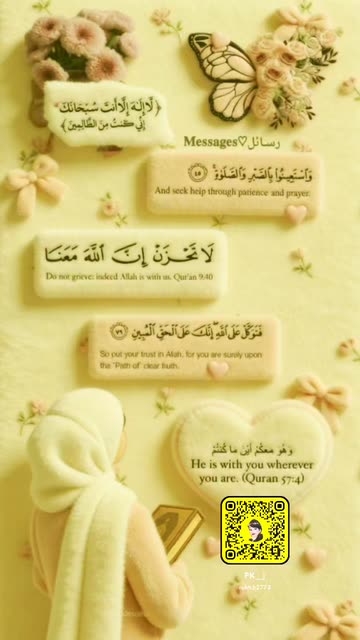 ﴿لَا إِلَٰهَ إِلَّا أَنتَ سُبْحَانَكَ
إِنِّي كُنتُ مِنَ الظَّالِمِينَ﴾
Messages♡رسائل
وَاسْتَعِينُوا بِالصَّبْرِ وَالصَّلَوٰةِ ۚ ٤٥
And seek help through patience and prayer.
لَا تَحْزَنْ إِنَّ ٱللَّهَ مَعَنَا
Do not grieve; indeed Allah is with us. Qur'an 9:40
فَتَوَكَّلْ عَلَى اللَّهِ ۖ إِنَّكَ عَلَى الْحَقِّ الْمُبِينِ ٧٩
So put your trust in Allah, for you are surely upon
the "Path of" clear truth.
وَهُوَ مَعَكُمْ أَيْنَ مَا كُنْتُمْ
He is with you wherever
you are. (Quran 57:4)